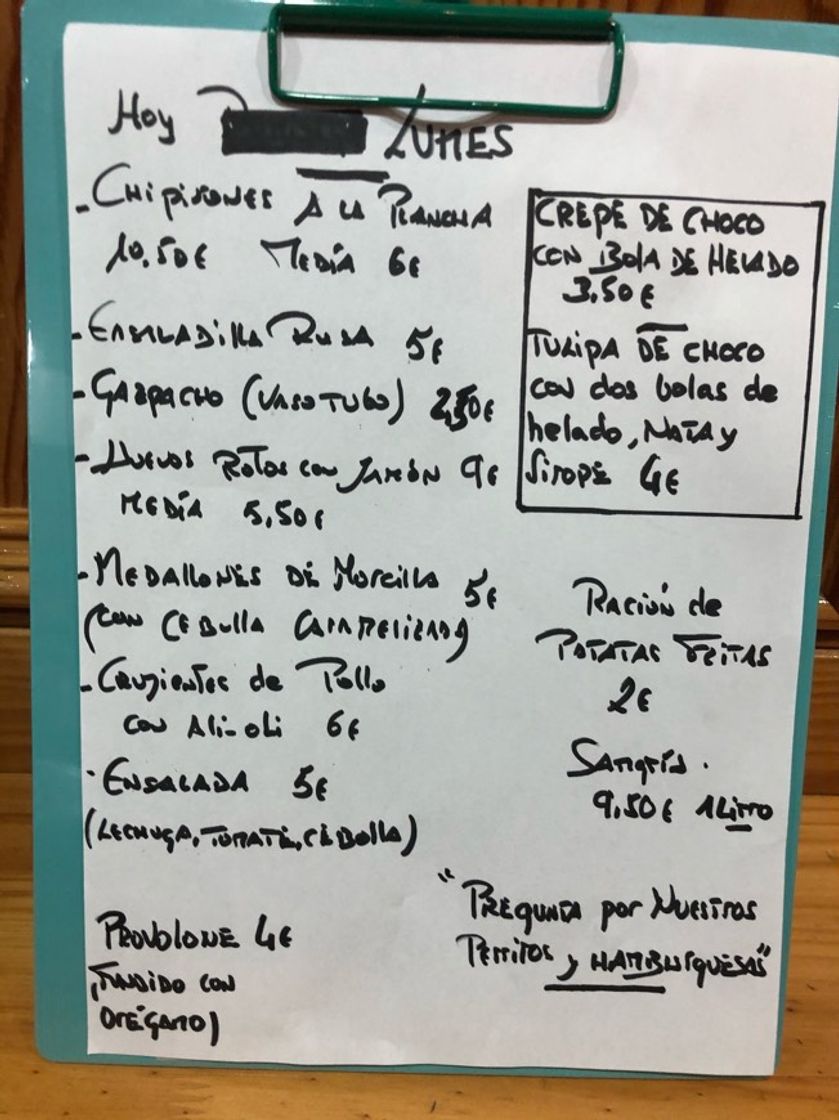 Hoy LUNES
- CHIPIRONES A LA PLANCHA
10,50€ MEDIA 6€
- ENSALADILLA RUSA 5€
- GAZPACHO (VASO TUBO) 2,50€
- HUEVOS ROTOS con JAMÓN 9€
MEDÍA 5,50€
- MEDALLONES DE MORCILLA 5€
(CON CEBOLLA CARAMELIZADA)
- CRUJIENTES de POLLO
CON ALI-OLI 6€
· ENSALADA 5€
(LECHUGA, TOMATE, CEBOLLA)
PROVOLONE 4€
(FUNDIDO CON
ORÉGANO)
CREPE DE CHOCO
CON BOLA DE HELADO
3,50€
TULIPA DE CHOCO
con dos bolas de
helado, NATA y
SIROPE 4€
RACIÓN de
PATATAS FRITAS
2€
SANGRÍA.
9,50€ 1 LITRO
"PREGUNTA por NUESTROS
PERRITOS y HAMBURGUESAS"